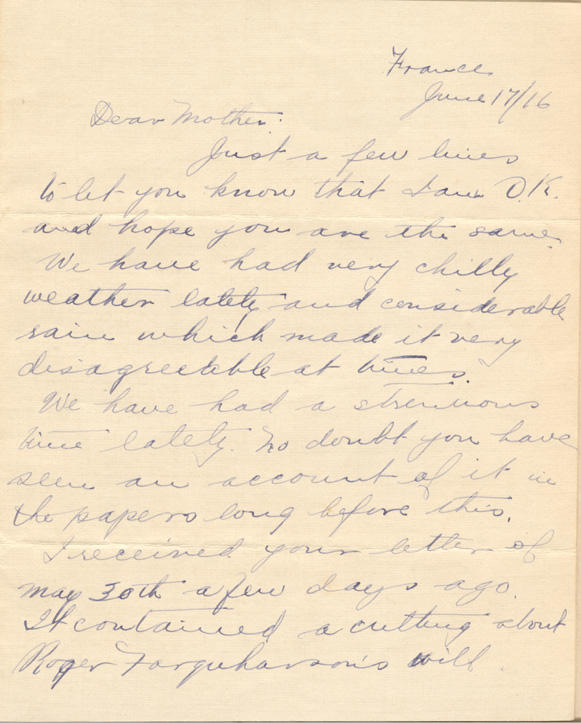 France
June 17/16
Dear Mother:
Just a few lines
to let you know that I am O.K.
and hope you are the same.
We have had very chilly
weather lately and considerable
rain which made it very
disagreeable at times.
We have had a strenuous
time lately. No doubt you have
seen an account of it in
the papers long before this.
I received your letter of
May 30th a few days ago.
It contained a cutting about
Roger Farquharson's will